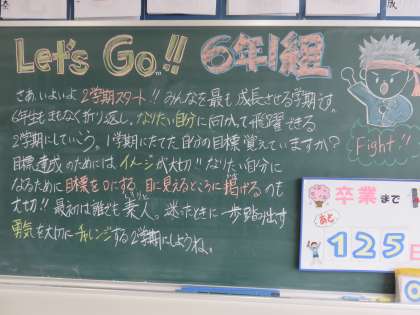 Let's Go!! 6年1組
さあ、いよいよ2学期スタート!! みんなを最も成長させる学期です。
6年生もまもなく折り返し、なりたい自分に向かって飛躍できる
2学期にしていこう。1学期にたてた自分の目標覚えていますか?
目標達成のためには、イメージが大切!! なりたい自分に
なるために目標を口にする、目に見えるところに掲げるのも
大切!! 最初は誰でも素人。迷ったときに一歩踏み出す
勇気を大切にチャレンジする2学期にしようね。
Fight!!
卒業まで
あと
125日